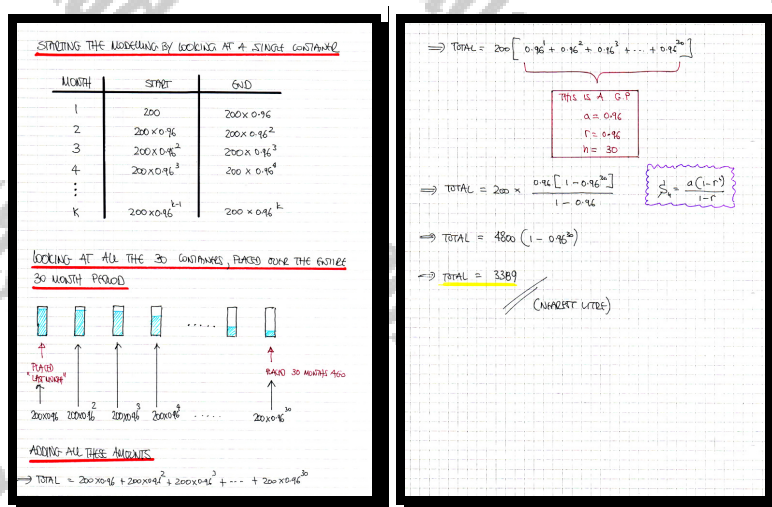 STARTING THE MODELLING BY LOOKING AT A SINGLE CONTAINER
MONTH START END
1 200 200×0.96
2 200×0.96 200×0.96²
3 200×0.96² 200×0.96³
4 200×0.96³ 200×0.96⁴
⋮
K 200×0.96ᵏ⁻¹ 200×0.96ᵏ
LOOKING AT ALL THE 30 CONTAINERS, PLACED OVER THE ENTIRE
30 MONTH PERIOD
.....
"PLACED
LAST MONTH"
PLACED 30 MONTHS AGO
200×0.96 200×0.96² 200×0.96³ 200×0.96⁴ ..... 200×0.96³⁰
ADDING ALL THESE AMOUNTS
⇒ TOTAL = 200×0.96 + 200×0.96² + 200×0.96³ + ... + 200×0.96³⁰
⇒ TOTAL = 200[0.96¹ + 0.96² + 0.96³ + ... + 0.96³⁰]
THIS IS A G.P
a = 0.96
r = 0.96
n = 30
⇒ TOTAL = 200 × 0.96[1 - 0.96³⁰] / 1 - 0.96
Sₙ = a(1-rⁿ) / 1-r
⇒ TOTAL = 4800(1 - 0.96³⁰)
⇒ TOTAL = 3389
(NEAREST LITRE)